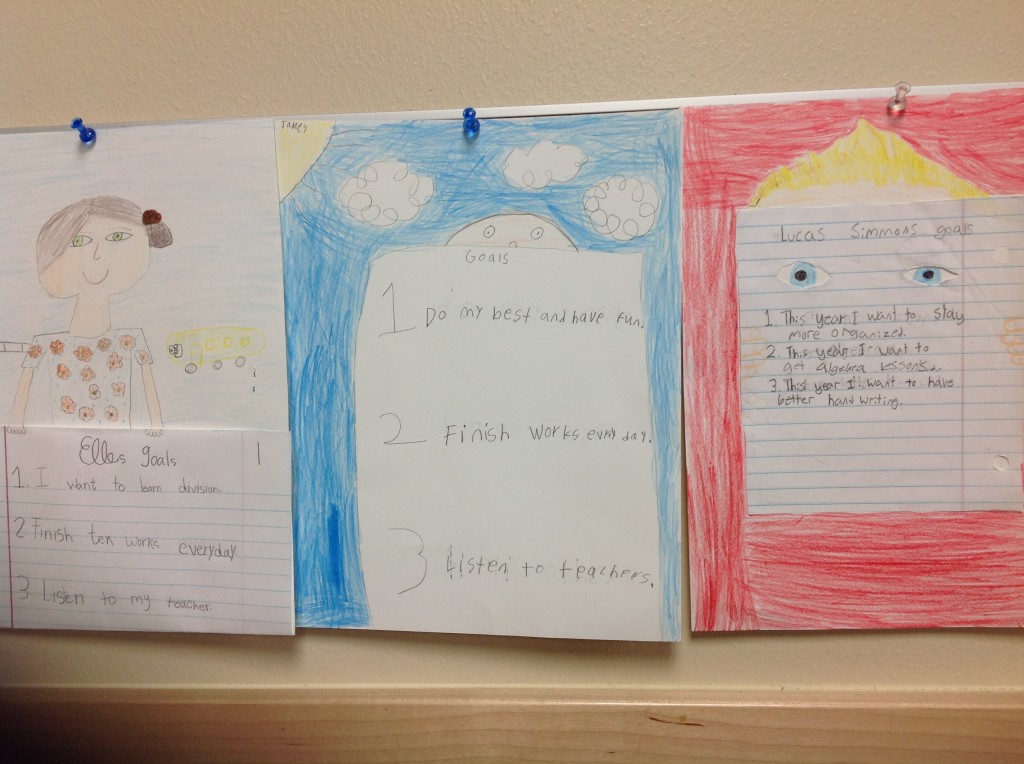 Elles goals
1. I want to learn division.
2 Finish ten works everyday
3 Listen to my teacher.
James
Goals
1 Do my best and have fun.
2 Finish works every day.
3 Listen to teachers.
Lucas Simmons goals
1. This year I want to stay
more organized.
2. This year I want to
get algebra lessons.
3. This year I want to have
better hand writing.